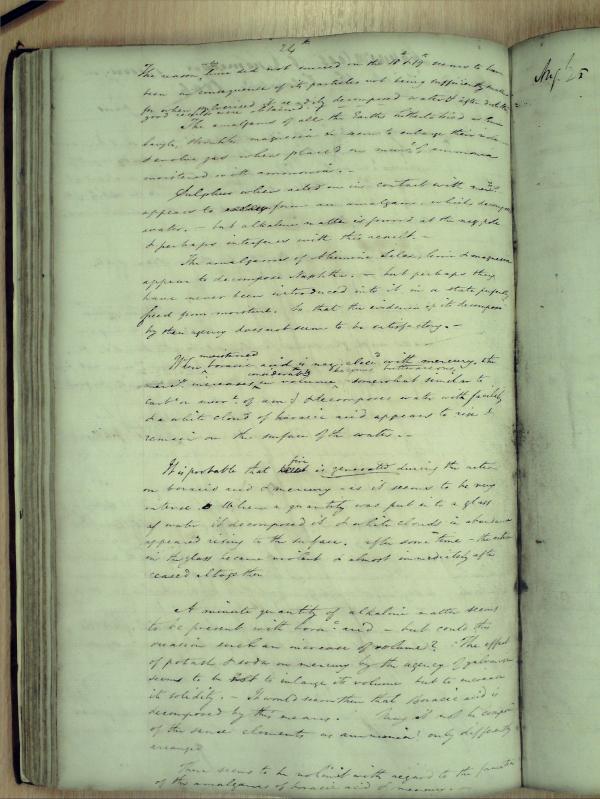 24th
The reason lime did not succeed on the 18th & 19th seems to have
been in consequence of its particles not being sufficiently
for when pulverised it readily decomposed water & after
good results were obtained
The amalgams of all the Earths hitherto tried as lime
barytes, strontites magnesia &c seem to enlarge their
sensitive gas when placed on mur.te of ammonia
moistened with ammonia. -
Sulphur when acted on in contact with
appears to form an amalgam which decomposes
water. - but alkaline matter is formed at the neg. pole
& perhaps interferes with this result. -
The amalgams of Alumine Silex, & magnesia
appear to decompose Naphtha. - but perhaps they
have never been introduced into it in a state perfectly
freed from moisture. So that the evidence of its decompos
by their agency does not seem to be satisfactory. -
When moistened boracic acid is neg. elec.d with mercury, the
increases considerably in volume becomes butyraceous, somewhat similar to
carb.t or mur.te of am. & decomposes water with facility
& a white cloud of boracic acid appears to rise &
remain on the surface of the water. -
It is probable that fire is generated during the action
on boracic acid & mercury as it seems to be very
intense. When a quantity was put into a glass
of water it decomposed it & white clouds in abundance
appeared rising to the surface. after some time - the action
in the glass became violent & almost immediately after
ceased altogether
A minute quantity of alkaline matter seems
to be present with borac. acid - but could this
occasion such an increase of volume? The effect
of potash & soda on mercury by the agency of galvanism
seems to be not to enlarge its volume but to increase
its solidity. - It would seem then that Boracic acid is
decomposed by this means. May it not be composed
of the same elements as ammonia? only differently
arranged
There seems to be no limit with regard to the formation
of the amalgams of boracic acid of mercury. -
Aug. 25